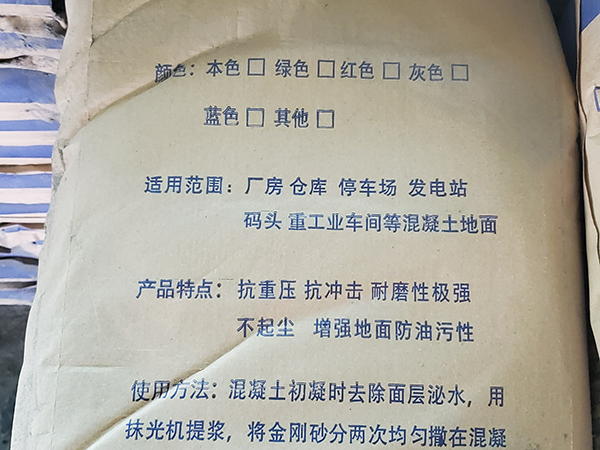 颜色：本色□ 绿色□ 红色□ 灰色□
蓝色□ 其他□
适用范围：厂房 仓库 停车场 发电站
码头 重工业车间等混凝土地面
产品特点：抗重压 抗冲击 耐磨性极强
不起尘 增强地面防油污性
使用方法：混凝土初凝时去除面层泌水，用
抹光机提浆，将金刚砂分两次均匀撒在混凝